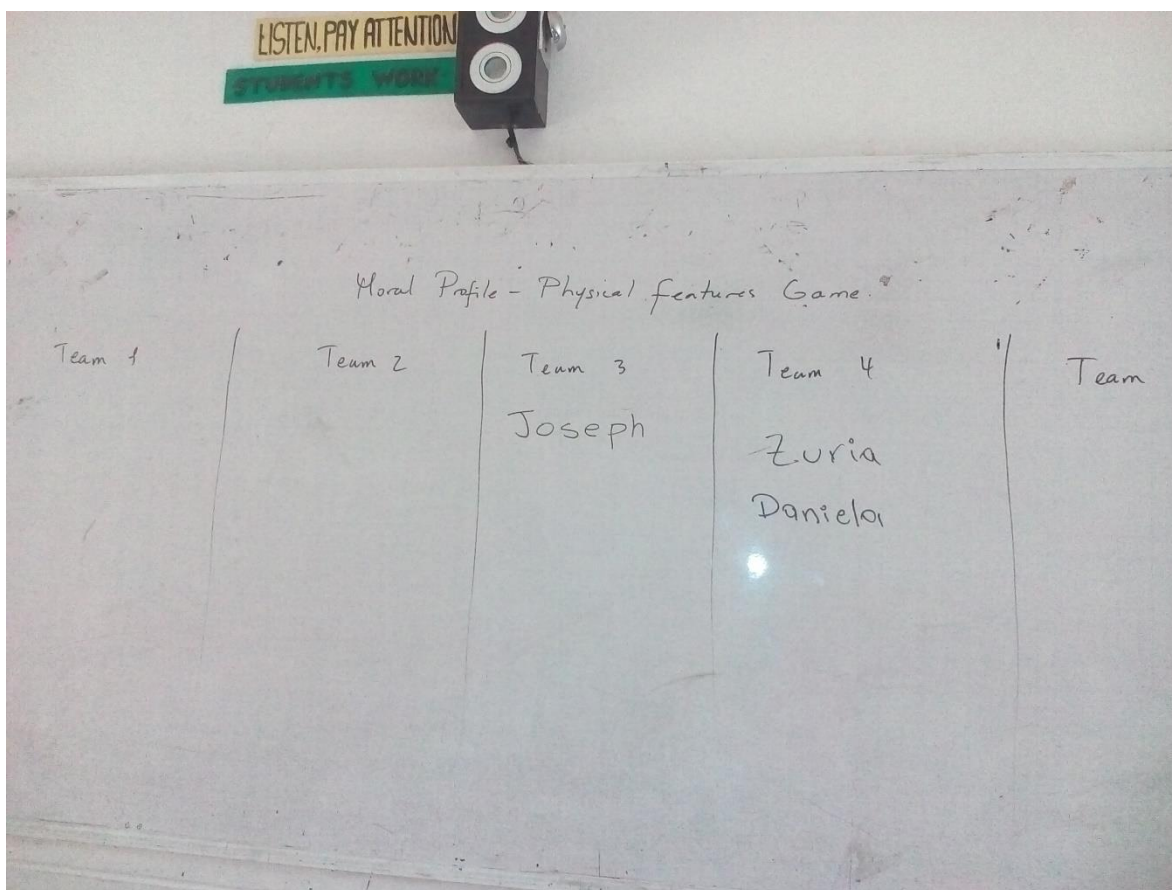 LISTEN, PAY ATTENTION
STUDENTS WORK
Moral Profile - Physical features Game.
Team 1
Team 2
Team 3
Team 4
Team
Joseph
Zuria
Daniela